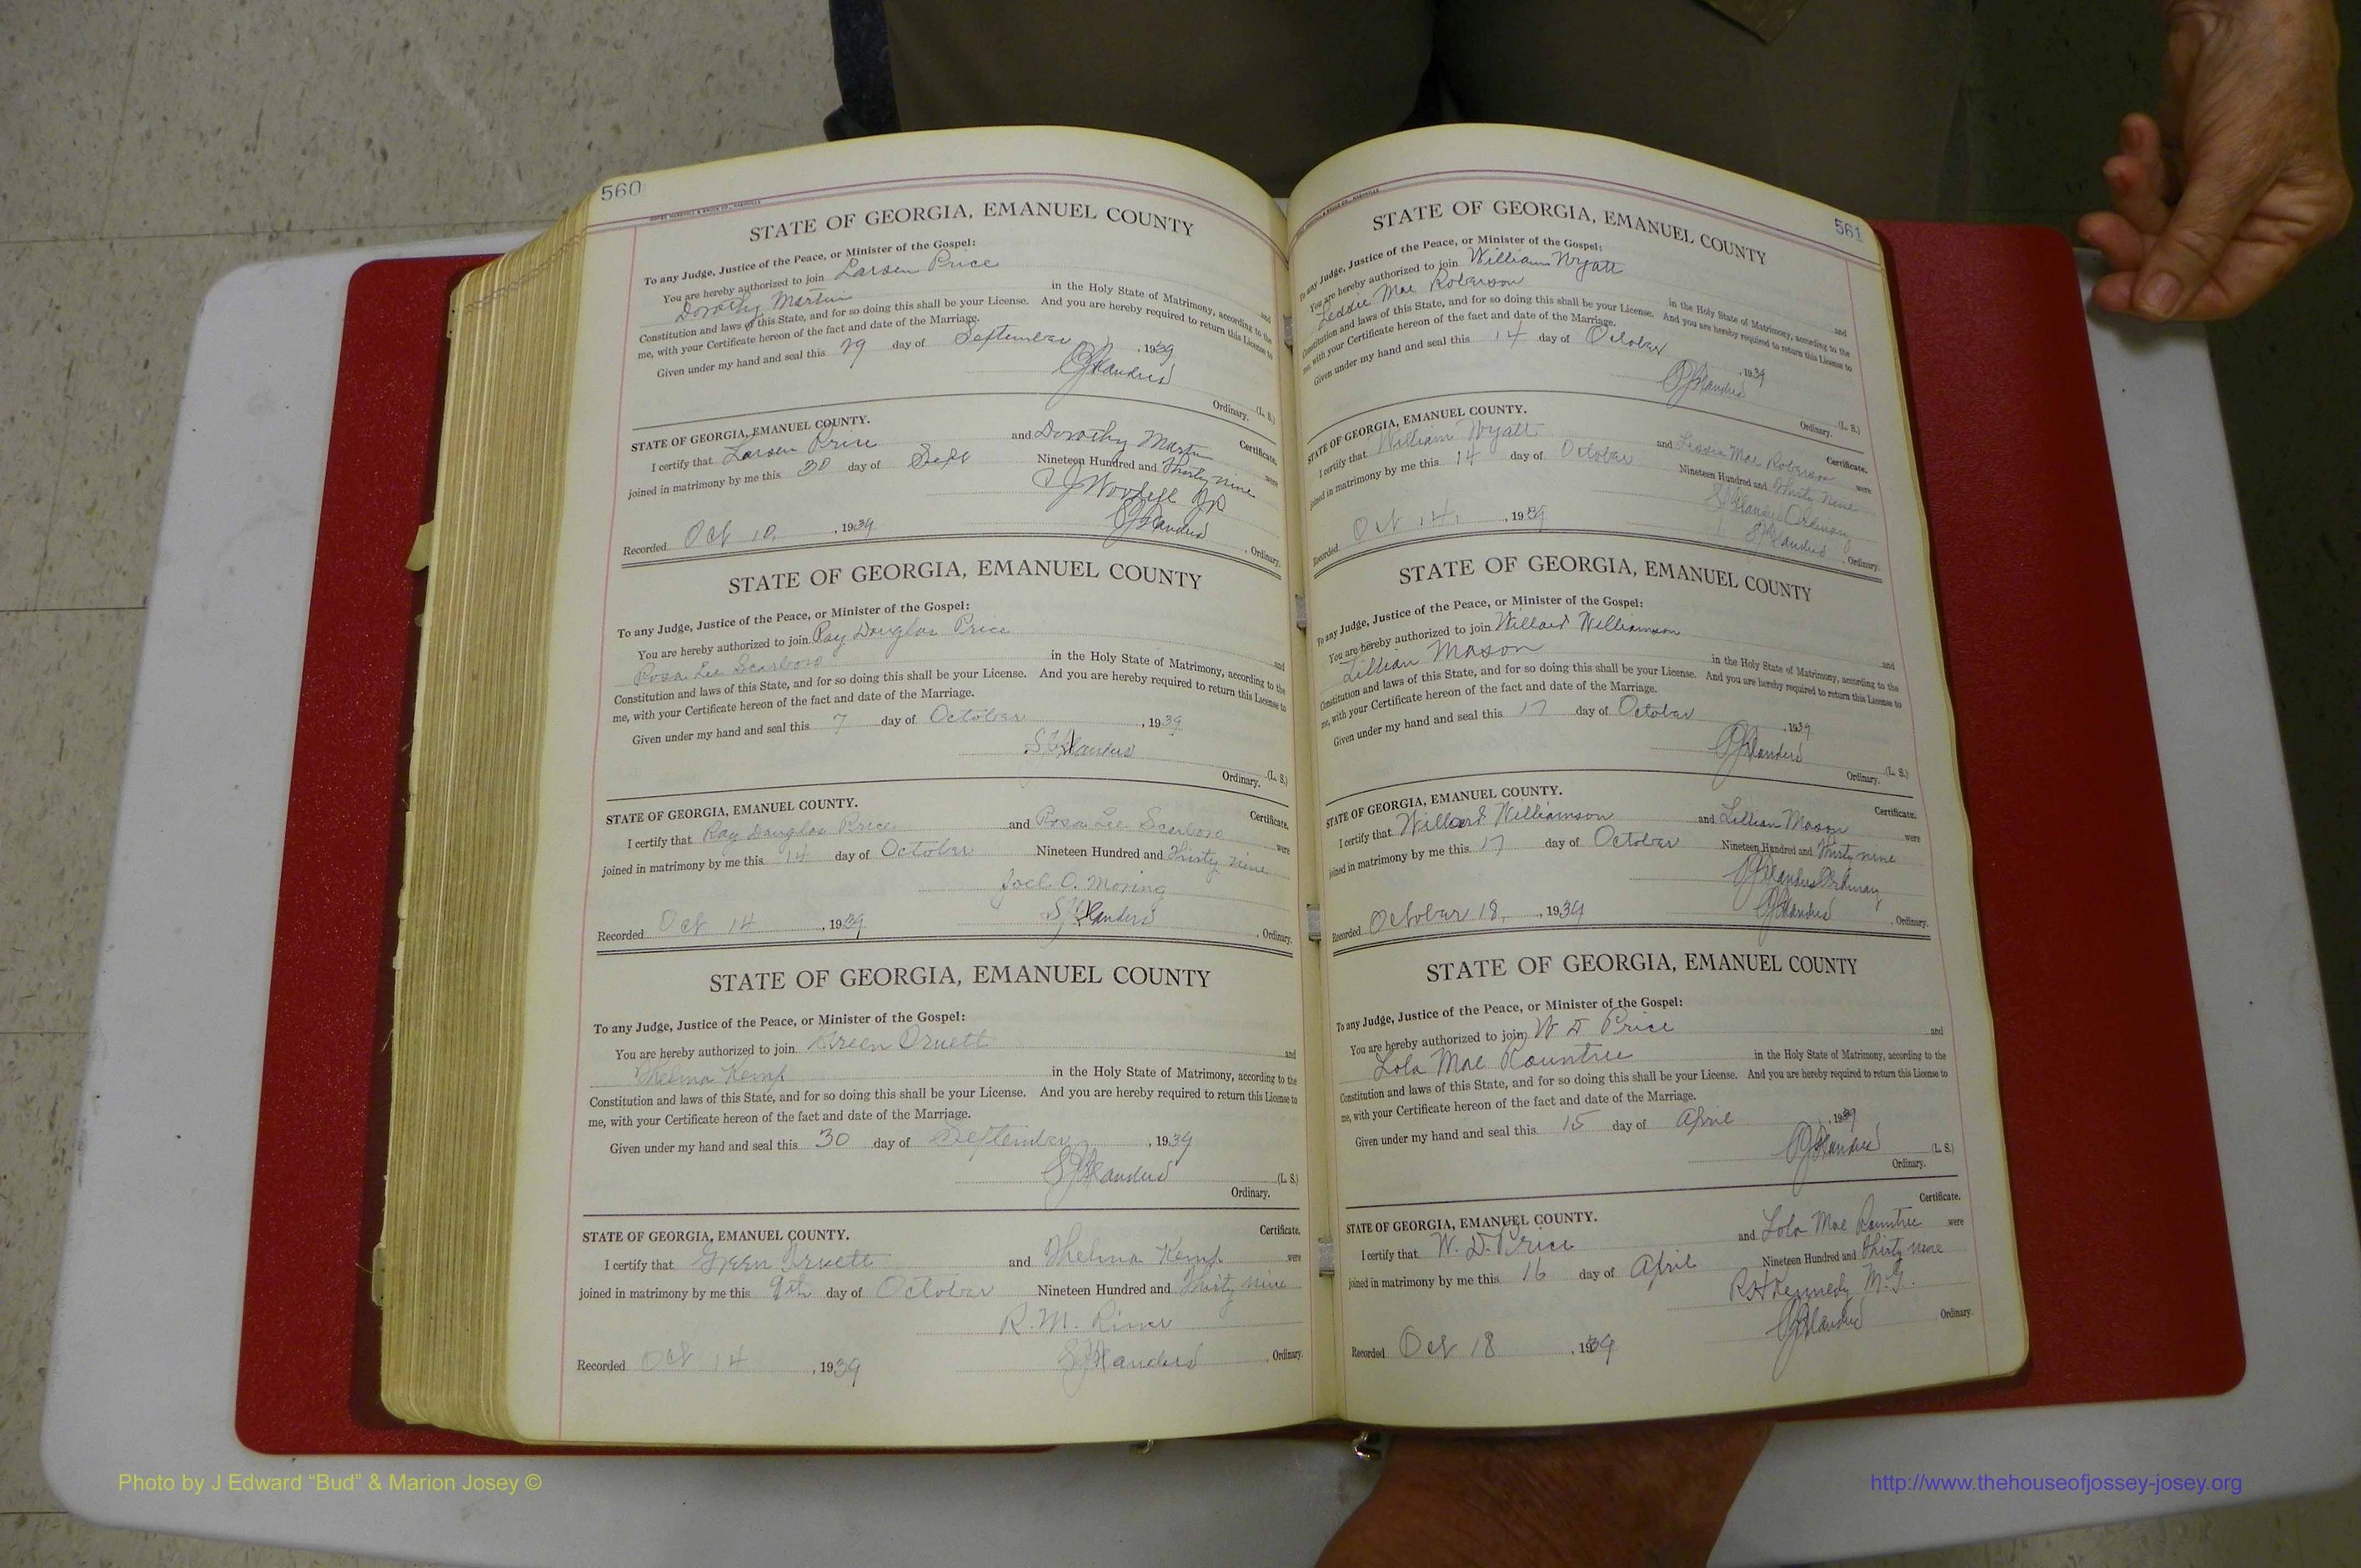 560
STATE OF GEORGIA, EMANUEL COUNTY
To any Judge, Justice of the Peace, or Minister of the Gospel:
You are hereby authorized to join Larsen Price and
Dorothy Martin in the Holy State of Matrimony, according to the
Constitution and laws of this State, and for so doing this shall be your License. And you are hereby required to return this License to
me, with your Certificate hereon of the fact and date of the Marriage.
Given under my hand and seal this 29 day of September, 1939
(L. S.)
Ordinary.
STATE OF GEORGIA, EMANUEL COUNTY. Certificate.
I certify that Larsen Price and Dorothy Martin were
joined in matrimony by me this 30 day of Sept Nineteen Hundred and Thirty nine
Recorded Oct 10, 1939 , Ordinary.
STATE OF GEORGIA, EMANUEL COUNTY
To any Judge, Justice of the Peace, or Minister of the Gospel:
You are hereby authorized to join Ray Douglas Price and
Rosa Lee Scarboro in the Holy State of Matrimony, according to the
Constitution and laws of this State, and for so doing this shall be your License. And you are hereby required to return this License to
me, with your Certificate hereon of the fact and date of the Marriage.
Given under my hand and seal this 7 day of October, 1939
(L. S.)
Ordinary.
STATE OF GEORGIA, EMANUEL COUNTY. Certificate.
I certify that Ray Douglas Price and Rosa Lee Scarboro were
joined in matrimony by me this 14 day of October Nineteen Hundred and Thirty nine
Recorded Oct 14, 1939 , Ordinary.
STATE OF GEORGIA, EMANUEL COUNTY
To any Judge, Justice of the Peace, or Minister of the Gospel:
You are hereby authorized to join Green Pruett and
Thelma Kemp in the Holy State of Matrimony, according to the
Constitution and laws of this State, and for so doing this shall be your License. And you are hereby required to return this License to
me, with your Certificate hereon of the fact and date of the Marriage.
Given under my hand and seal this 30 day of September, 1939
(L. S.)
Ordinary.
STATE OF GEORGIA, EMANUEL COUNTY. Certificate.
I certify that Green Pruett and Thelma Kemp were
joined in matrimony by me this 9th day of October Nineteen Hundred and Thirty nine
R. M.
Recorded Oct 14, 1939 , Ordinary.
561
STATE OF GEORGIA, EMANUEL COUNTY
To any Judge, Justice of the Peace, or Minister of the Gospel:
You are hereby authorized to join William Wyatt and
Mae Roberson in the Holy State of Matrimony, according to the
Constitution and laws of this State, and for so doing this shall be your License. And you are hereby required to return this License to
me, with your Certificate hereon of the fact and date of the Marriage.
Given under my hand and seal this 14 day of October, 1939
(L. S.)
Ordinary.
STATE OF GEORGIA, EMANUEL COUNTY. Certificate.
I certify that William Wyatt and Mae Roberson were
joined in matrimony by me this 14 day of October Nineteen Hundred and Thirty Nine
Ordinary
Recorded Oct 14, 1939 , Ordinary.
STATE OF GEORGIA, EMANUEL COUNTY
To any Judge, Justice of the Peace, or Minister of the Gospel:
You are hereby authorized to join Willard Williamson and
Lillian Mason in the Holy State of Matrimony, according to the
Constitution and laws of this State, and for so doing this shall be your License. And you are hereby required to return this License to
me, with your Certificate hereon of the fact and date of the Marriage.
Given under my hand and seal this 17 day of October, 1939
(L. S.)
Ordinary.
STATE OF GEORGIA, EMANUEL COUNTY. Certificate.
I certify that Willard Williamson and Lillian Mason were
joined in matrimony by me this 17 day of October Nineteen Hundred and Thirty nine
Ordinary
Recorded October 18, 1939 , Ordinary.
STATE OF GEORGIA, EMANUEL COUNTY
To any Judge, Justice of the Peace, or Minister of the Gospel:
You are hereby authorized to join W D Price and
Lola Mae Rountree in the Holy State of Matrimony, according to the
Constitution and laws of this State, and for so doing this shall be your License. And you are hereby required to return this License to
me, with your Certificate hereon of the fact and date of the Marriage.
Given under my hand and seal this 15 day of April, 1939
(L. S.)
Ordinary.
STATE OF GEORGIA, EMANUEL COUNTY. Certificate.
I certify that W. D. Price and Lola Mae Rountree were
joined in matrimony by me this 16 day of April Nineteen Hundred and Thirty nine
R H Kennedy M.G.
Recorded Oct 18, 1939 Ordinary.
Photo by J Edward “Bud” & Marion Josey ©
http://www.thehouseofjossey-josey.org